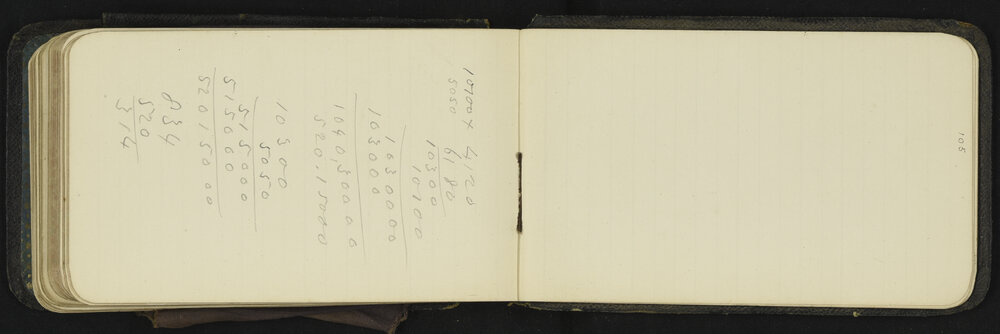 10100 x 4120
5050 6180
10300
10100
1030000
103000
1040,30000
520.15000
10300
5050
515000
515000
52015000
834
520
314
105